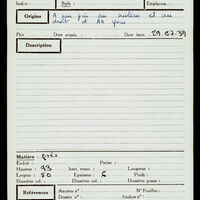 Indice : Style : Emplacem. :
Origine A peu près au milieu et au
droit d'Ak Yum
Prix Date acquis. : Date inscr. 29.07.39
Description
Matière : grès
Enduit : Patine :
Hauteur : 93 haut. tenon : Longueur :
Largeur : 50 Epaisseur : 6 Poids :
Diamètre col. : Diamètre col. : Diamètre poteau :
Références Anciens nos : No Feuilles :
Dossier no : Analyse no :